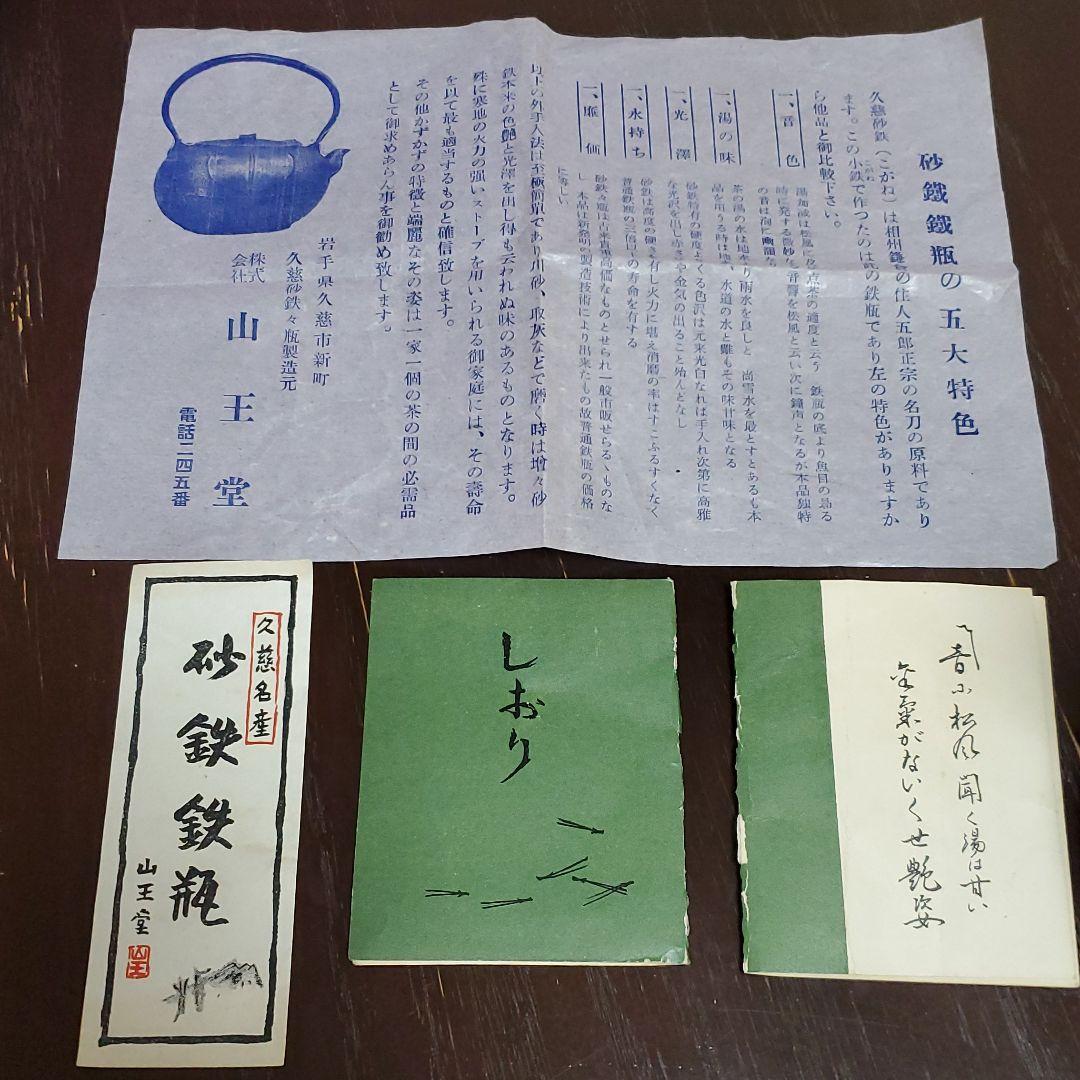 砂鐵鐵瓶の五大特色
久慈砂鉄(こがね)は相州鎌の住人五郎正宗の名刀の原料であり
ます。この小鉄で作つたのは此の鉄瓶であり左の特色がありますか
ら他品と御比較下さい。
一、音色
湯加減は松風に及点茶の適度と云う 鉄瓶の底より魚目の昜る
時に発する微妙な音響を松風と云い次に鐘声となるが本品独特
の音は宿に幽韻なり
一、湯の味
茶の湯の水は地水より雨水を良しと 尚雪水を最とすとあるも本
品を用うる時は地、水道の水と雖もその味甘味となる
一、光澤
砂鉄特有の硬度よくる色沢は元来光白なれば手入れ次第に高雅
な光沢を出し赤さや金気の出ること殆んどなし
一、永持ち
砂鉄は高度の硬さを有し火力に堪え消磨の率はすこぶるすくなく
普通鉄瓶の三倍以上の寿命を有する
一、廉価
砂鉄々瓶は古来貴重高価なものとせられ一般市販せらるゝものな
し 本品は新発明の製造技術により出来たもの故普通鉄瓶の価格
に等しい
以上の外手入法は至極簡単であり川砂、取灰などで磨く時は増々砂
鉄本来の色艶と光澤を出し得も云われぬ味のあるものとなります。
殊に寒地の火力の強いストーブを用いられる御家庭には、その壽命
を以て最も適当するものと確信致します。
その他かずかずの特徴と端麗なその姿は一家一個の茶の間の必需品
として御求めあらん事を御勧め致します。
岩手県久慈市新町
久慈砂鉄々瓶製造元
株式会社 山王堂
電話二四五番
久慈名産
砂鉄鉄瓶
山王堂
山王
しおり
音に松風聞く湯は甘い
金気がないくせ艶姿